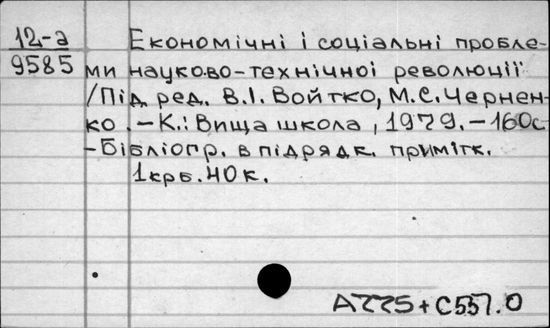 12-а
9585
Економічні і соціальні пробле-
ми науково-технічної революції
/Під ред. В.І. Войтко, М.С. Чернен-
ко. – К.: Вища школа, 1979. – 160с
– Бібліогр. в підрядк. примітк.
1крб. 40к.
А225+С557.0